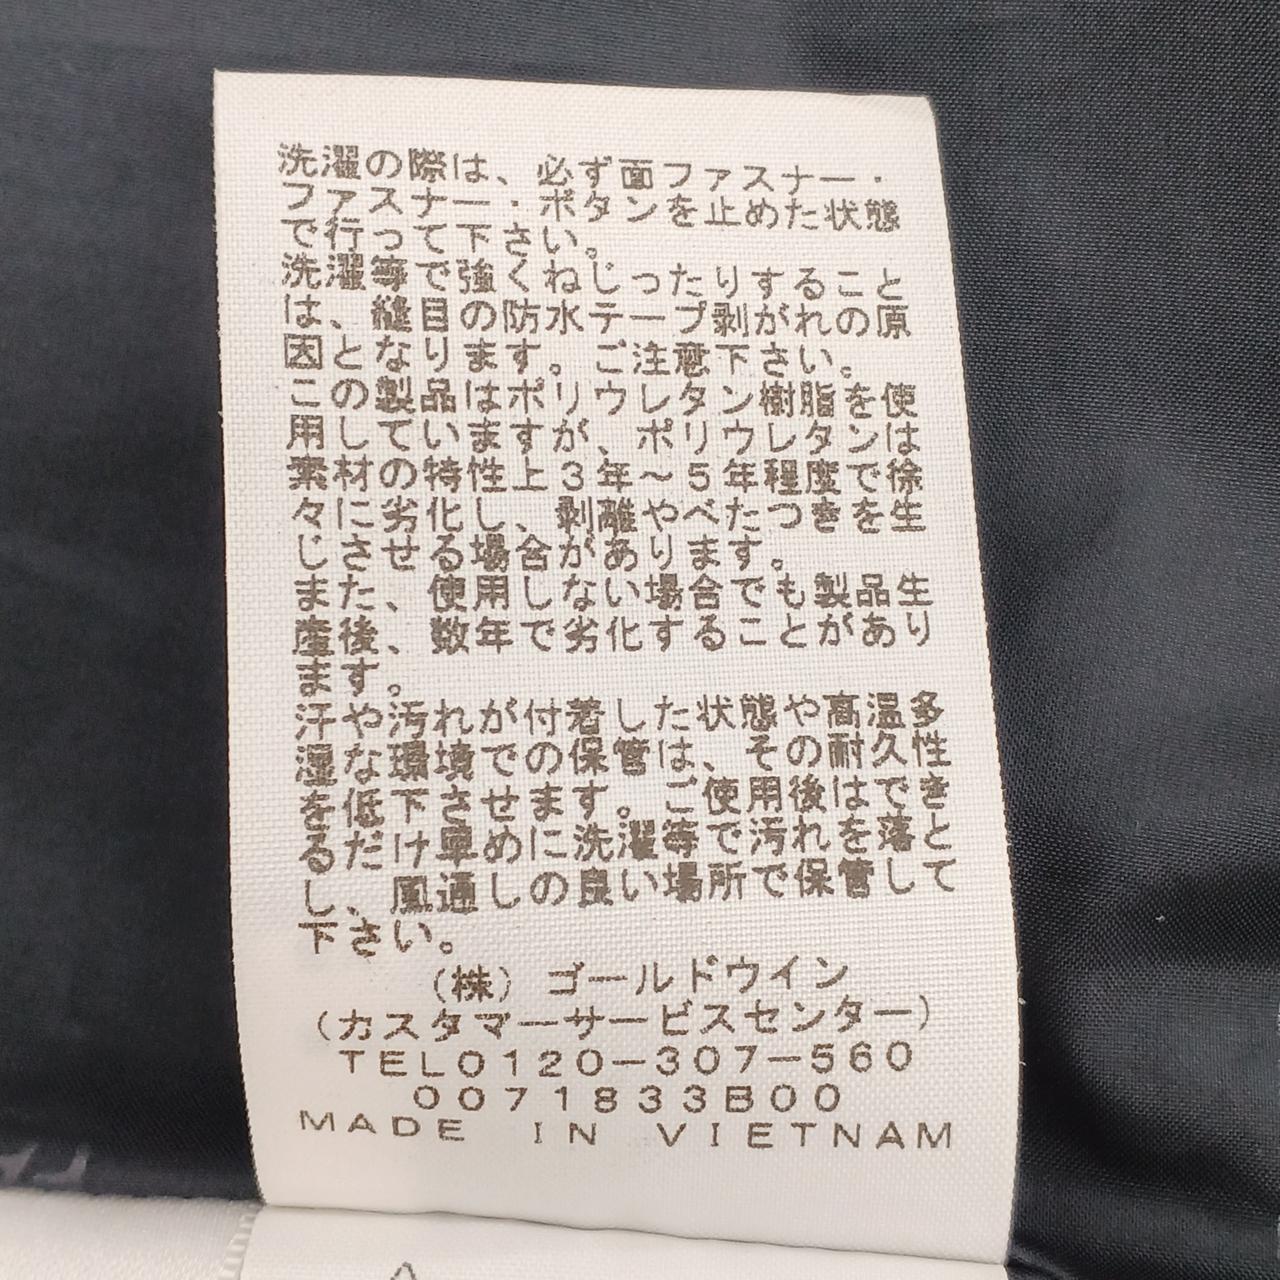 洗濯の際は、必ず面ファスナー・
ファスナー・ボタンを止めた状態
で行って下さい。
洗濯等で強くねじったりすること
は、縫目の防水テープ剥がれの原
因となります。ご注意下さい。
この製品はポリウレタン樹脂を使
用していますが、ポリウレタンは
素材の特性上3年～5年程度で徐
々に劣化し、剥離やべたつきを生
じさせる場合があります。
また、使用しない場合でも製品生
産後、数年で劣化することがあり
ます。
汗や汚れが付着した状態や高温多
湿な環境での保管は、その耐久性
を低下させます。ご使用後はでき
るだけ早めに洗濯等で汚れを落と
し、風通しの良い場所で保管して
下さい。
(株)ゴールドウイン
(カスタマーサービスセンター)
TEL0120-307-560
0071833B00
MADE IN VIETNAM